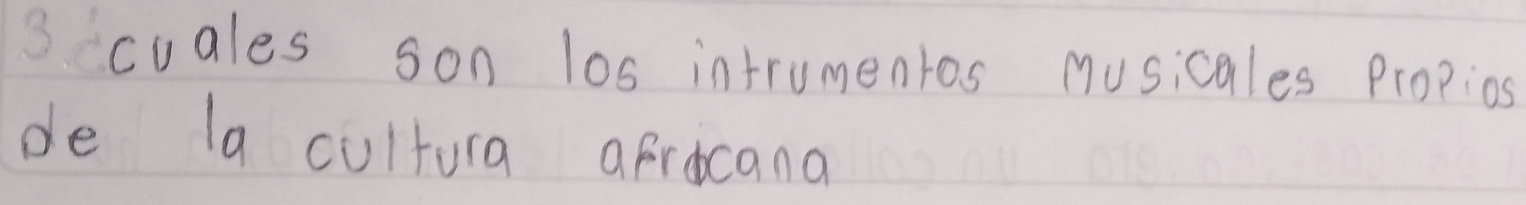 3. cuales son los intrumentos musicales propios
de la cultura africana